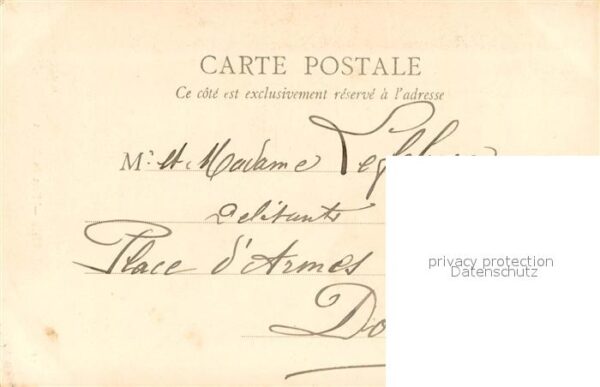 CARTE POSTALE
Ce côté est exclusivement réservé à l'adresse
M. et Madame
Place d'Armes
privacy protection
Datenschutz